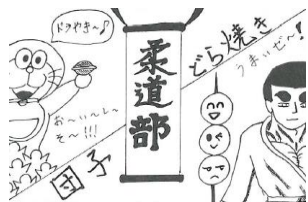 ドラやき〜♪
お〜い〜し〜
そ〜!!!
団子
柔道部
どら焼き
うまいぜ〜!